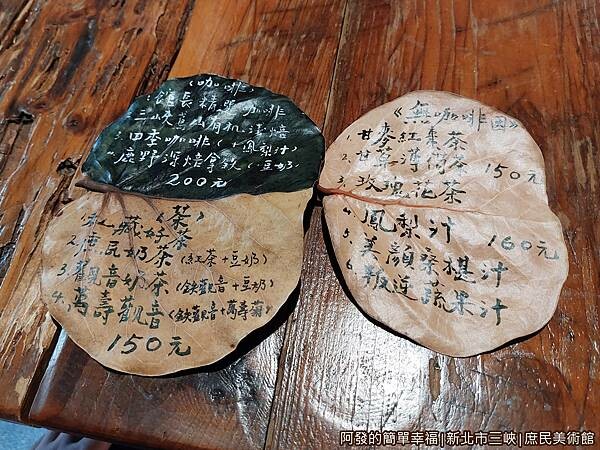 《咖啡》
1.館長精選咖啡
三峽鳶山有机淺焙
3.四季咖啡(+鳳梨汁)
4.鹿野深焙拿鉄(豆奶)
200元
《茶》
1.私藏好茶
2.庶民奶茶(紅茶+豆奶)
3.觀音奶茶(鉄觀音+豆奶)
4.萬壽觀音(鉄觀音+萬壽菊)
150元
《無咖啡因》
1.甘麥紅棗茶
2.甘草薄荷茶 150元
3.玫瑰花茶
4.鳳梨汁 160元
5.美顏桑椹汁
6.叛逆蔬果汁
阿發的簡單幸福|新北市三峽|庶民美術館